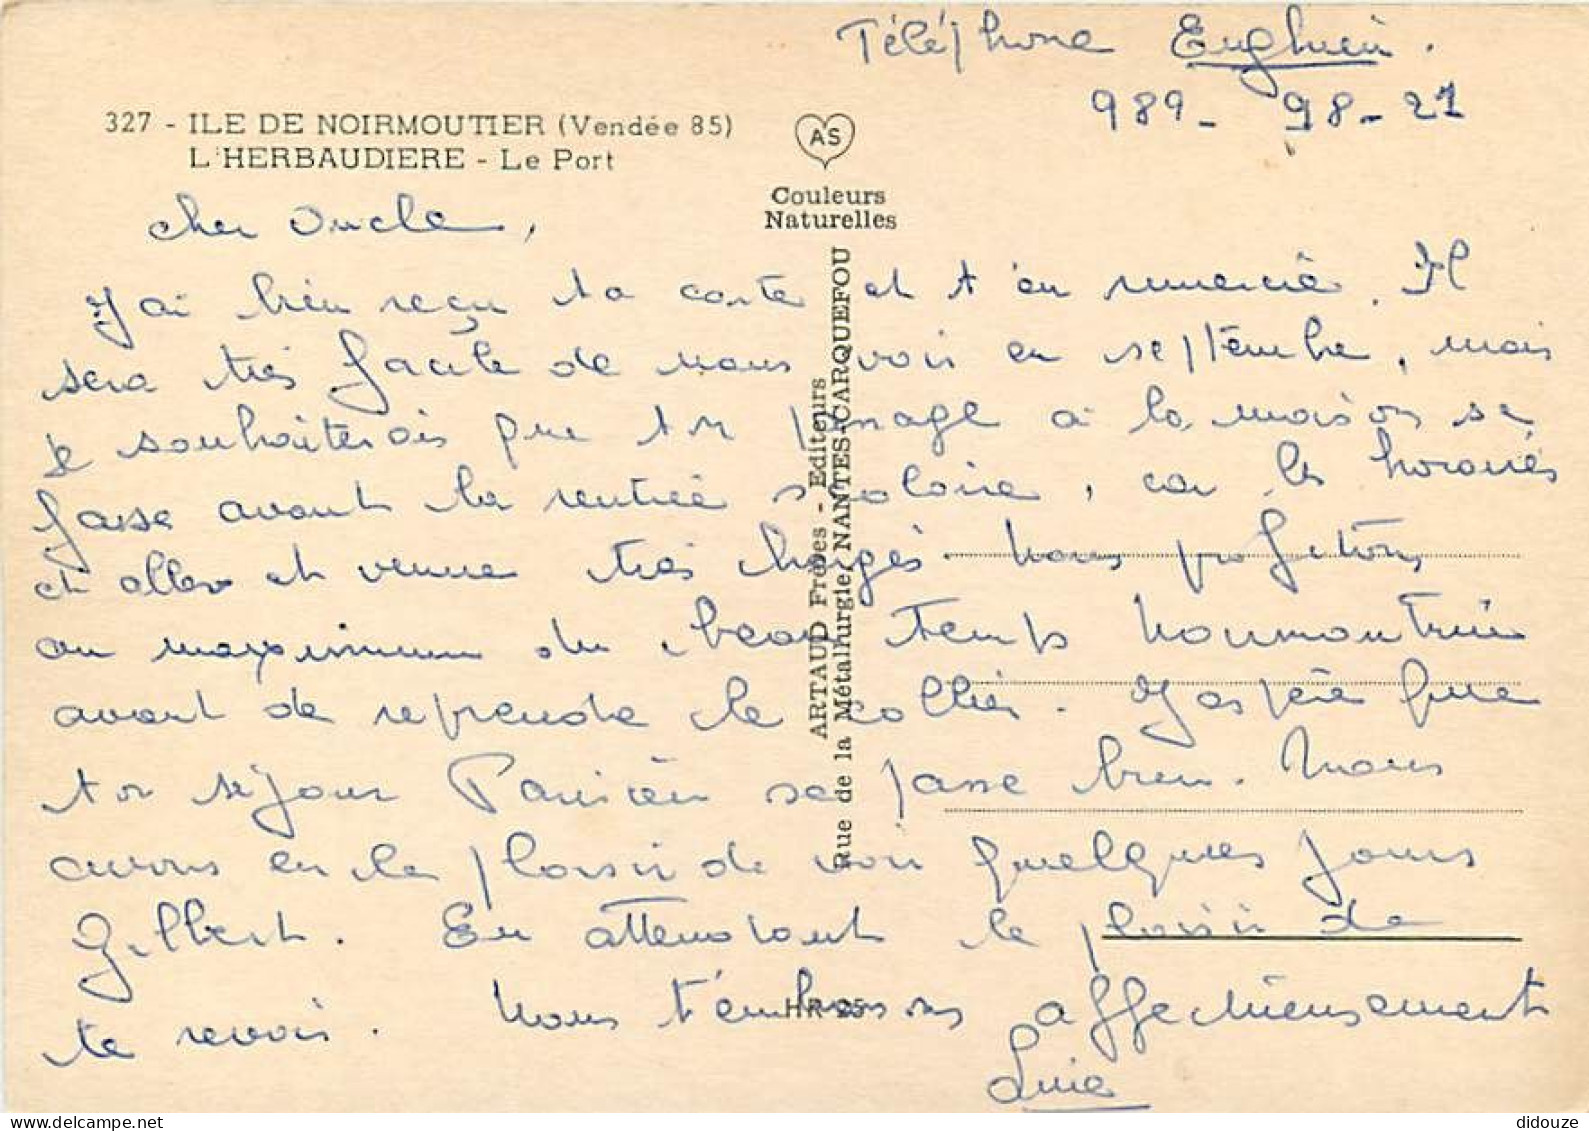 Téléphone Enghien.
989 - 98 - 21
327 - ILE DE NOIRMOUTIER (Vendée 85)
L'HERBAUDIERE - Le Port
AS
Couleurs
Naturelles
cher Oncle,
J'ai bien reçu ta carte et t'en remercie. Il
sera très facile de nous voir en septembre, mais
je souhaiterais que ton passage à la maison se
fasse avant la rentrée scolaire, car les horaires
et allée et venue très chargés. Nous profitons
au maximum du beau temps Noirmoutrin
avant de reprendre le collier. J'espère que
ton séjour Parisien se passe bien. Nous
avons eu le plaisir de voir quelques jours
Gilbert. En attendant le plaisir de
te revoir. Nous t'embrassons affectueusement
ARTAUD Frères - Editeurs
Rue de la Métallurgie, NANTES-CARQUEFOU
HR 25
delcampe.net
didouze